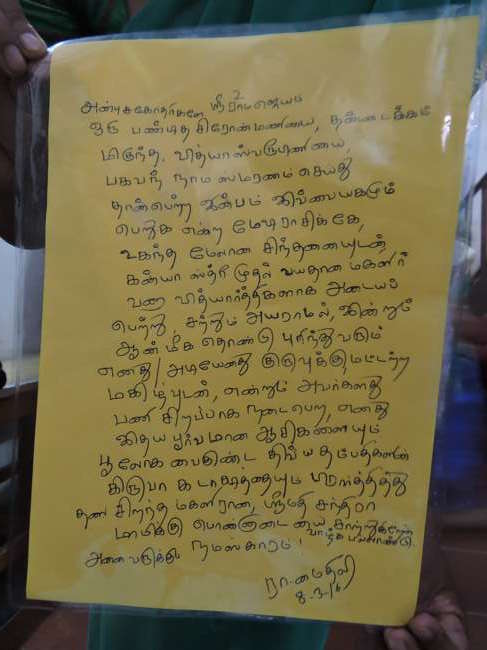 அன்புசகோதரிகளே ஸ்ரீராமஜெயம் 2
ஒரு பண்டித சிரோன்மணியை, தன்னடக்கம்
மிகுந்த, வித்யாஸ்வரூபிணியை,
பகவந் நாம ஸ்மரணம் செய்து
தான்பெற்ற இன்பம் இவ்வையகமும்
பெறுக என்ற மேஷராசிக்கே,
உகந்த மேலான சிந்தனையுடன்
கன்யா ஸ்த்ரீ முதல் வயதான மகளிர்
வரை வித்யார்த்திகளாக அடையப்
பெற்று, சற்றும் அயராமல், இன்றும்
ஆன்மீக தொண்டு புரிந்து வரும்
எனது / அடியேனது குருவுக்கு மட்டற்ற
மகிழ்புடன், என்றும் அவர்களது
பணி சிறப்பாக நடைபெற, எனது
இதய பூர்வமான ஆசிகளையும்
பூலோக வைகுண்ட திவ்ய தம்பதிகளின்
கிருபா கடாக்ஷத்தையும் ப்ரார்த்தித்து
தன சிறந்த மகளிரான, ஸ்ரீமதி சந்திரா
மாமிக்கு பொன்னாடையை சாற்றுகிறேன்
வாழ்க பல்லாண்டு.
நமஸ்காரம்!
ரா. மைதிலி
8.3.16